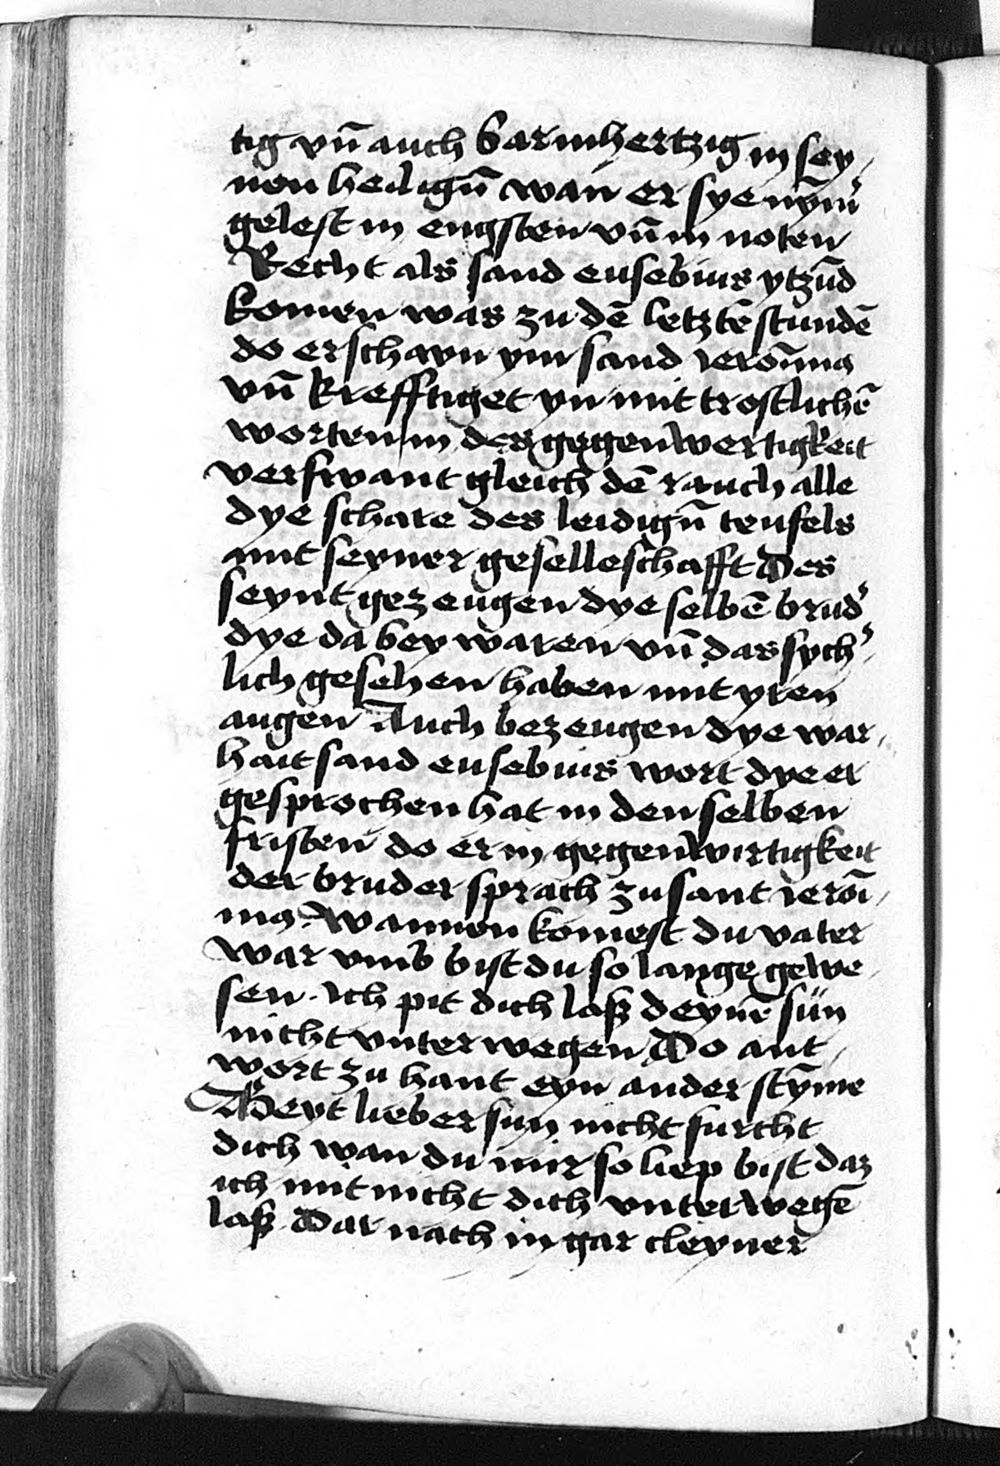 tig vn̄ auch barmhertzig in sey⸗
nen heilign̄ wan er sye nym̄
gelest in engsten vn̄ in noten
Recht als sand eusebius ytzūd
komen was zu dē letztē stundē
do erschayn ym sand ieronīmꝯ
vn̄ krefftiget yn mit trostlichē
worten in des gegenwertigkeit
verswant gleich dē rauch alle
dye schare des leidign̄ teufels
mit seyner geselleschafft Des
seynt gezeugen dye selbē brud'
dye da bey waren vn̄ das sych'⸗
lich gesehen haben mit yren
augen Auch bezeugen dye war⸗
hait sand eusebius wort dye er
gesprochen hat in den selben
fristen do er in gegenwirtigkeit
der bruder sprach zu sant ieroī⸗
mꝯ Wannen komest du vater
war vmb bist du so lange gewe⸗
sen. Ich pit dich laß deynē sün
nicht vnterwegen Do ant⸗
wort zu hant eyn ander stȳme
Beyt lieber sun nicht furcht
dich wan du mir so liep bist daz
ich mit nicht dich vnterwegē
laß Dar nach in gar cleyner